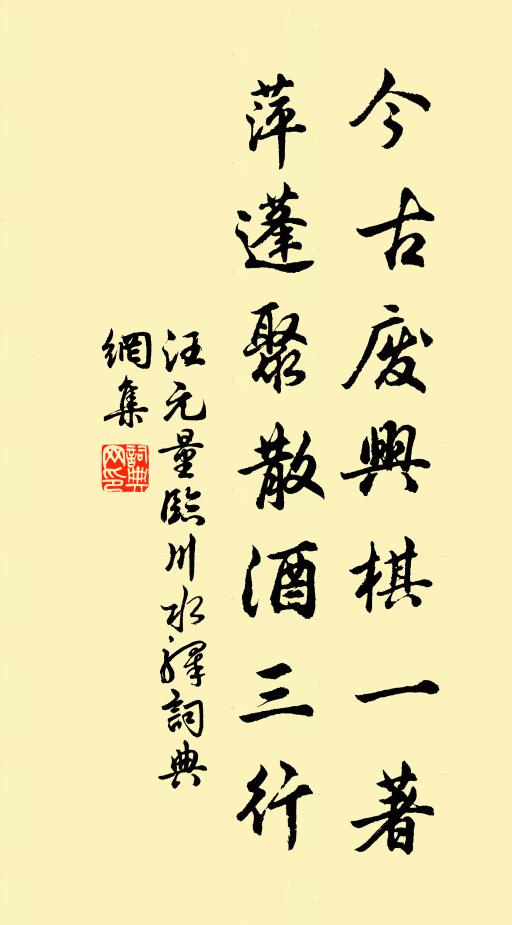 今古废興棋一著
萍蓬聚散酒三行
汪元量臨川水驛詞典
網集
詞典網印